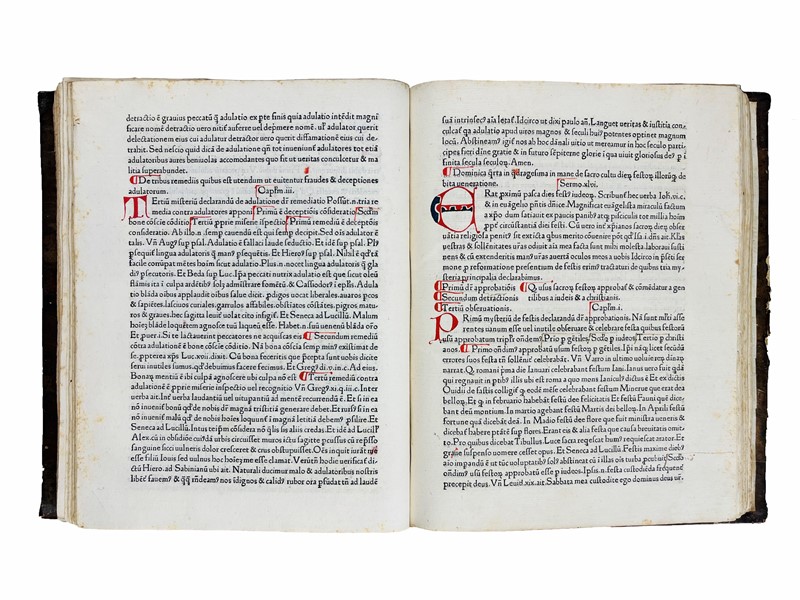 detractio ē grauius peccatū q̄ adulatio ex pte finis quia adulatio intēdit magni
ficare nomē detractio uero nitit auferre uel dep̄mere nomē. ulr adulator querit
delectationem eius cui adulatur detractor uero querit diffamationē eius cui de-
trahit. Sed nescio quid dicā de adulatione qn̄ tot inuenim⁹ adulatores tot etiā
adulatoribus aures beniuolas accomodantes quo fit ut ueritas conculcetur & ma
litia superabundet.
De tribus remediis quibus est utendum ut euitentur fraudes & deceptiones
adulatorum. Caplm.iii.
Tertiū misteriū declarandū de adulatione dr remediatio Possūt.n.tria re
media contra adulatores apponi Primū ē deceptiōis cōsideratio Scdm
bōne cōscie cōditio Tertiū pprie miserie īspectio Primū remediū ē deceptōis
consideratio. Ab illo.n. semp cauendū est qui semp decipit. Sed oīs adulator ē
talis. Vn̄ Aug⁹ sup psal. Adulatio ē fallaci laude seductio. Et idē sup psal. Pl⁹
psequit̄ lingua adulatoris q̄ man⁹ psequētis. Et Hiero⁹ sup psal. Nihil ē qd̄ tā
facile corrūpat mētes hoīm sicut adulatio. Plus.n.nocet lingua adulatoris q̄ gla
di⁹ pseeutoris. Et Beda sup Luc. Ipa peccati nutrix adulatio est que sicut oleū
flāmis ita ī culpa ardētib⁹ solz admistrare fomētū. & Cassiodor⁹ ī eplis. Adula
tio blāda oībus applaudit oībus salue dicit. pdigos uocat liberales. auaros pcos
& sapiētes. lasciuos curiales. garrulos affabiles. obstiatos cōstātes. pigros matu-
ros & graues. hec sagitta leuiť uolat cito infigit. Et Seneca ad Lucillū. Malum
hoīez blāde loquētem agnosce tuū laqueū esse. Habet.n.suū uenenū blāda oro
Et puer.i. Si te lactauerint peccatores ne acquiescas eis Secundum remediū
cōtra adulationē ē bone cōscie cōditio. Nā bona cōscia semp min⁹ existimat de
se.pptereа xp̄s Luc.xvii.dixit. Cū bona feceritis que p̄cepta sunt uobis dicite
serui inutiles sumus. qd̄ debuimus facere fecimus. Et Greg⁹ di.v.in.c. Ad eius.
Bonaz mentiū ē ibi culpā agnoscere ubi culpa nō est Tertiū remediū contra
adulationē ē pprie miserie inspectio uel recognitio Vn̄ Greg⁹.xi.q.iii.c. Inter
uerba air. Inter uerba laudantiū uel uitupantiū ad mentē recurrendū ē. Et si in ea
nō inuenit̄ bonū qd̄ de nobis dr magnā tristitiā generare debet. Et rurs⁹ si in ea
nō inuenit̄ malū qd̄ de nobis hoīes loquunt̄ ī magnā letitiā debem⁹ psilire. Et
Seneca ad Lucillū. Intus teipm cōsidera nō qlis sis aliis credas. Et idē ad Lucilľ
Alex.cū in obsidiōe cui⁹dā urbis circuisset muros ictu sagitte pcussus cu rep̄sso
sanguine sicci uulneris dolor cresceret & crus obstupuisset. Oēs inquit iurāt me
esse filiū Iouis sed uulnus hoc hoīez me esse clamat. Verūtn̄ hodie uerificat⁹ di-
ctū Hiero.ad Sabinianū ubi ait. Naturali ducimur malo & adulatoribus nostris
libēť fauem⁹ & qq̄ rn̄deam⁹ nos īdignos & calid⁹ rubor ora pfūdat tn̄ ad laudē
suā intrinsec⁹ aīa letať. Idcirco ut dixi paulo an̄. Languet ueritas & iustitia con-
culcať qa adulatio apud uiros magnos & seculi hui⁹ potentes optinet magnum
locū. Abstineam⁹ igiť nos ab hoc dānali uitio ut mereamur in hoc seculo parti-
cipes fieri diue gratie & in futuro sēpiterne glorie ī qua uiuit gloriosus de⁹ p i
finita secula seculoɀ. Amen.
Dominica qrta in qdragesima in mane de sacro cultu dieɀ festoɀ illorum de-
bita ueneratione. Sermo.xlvi.
ERAT. pximū pasca dies fest⁹ iudeoɀ. Scribunt̄ hec uerba Ioh.vi.c.
& in euāgelio p̄ntis dn̄ice. Magnificat euāgelista miraculū factum
a xpo dum satiauit ex paucis panib⁹ atq pisciculis tot millia hoīm
pp̄t circūstantiā diei festi. Cū uero inť xp̄ianos sacroɀ dieɀ obser
uātia religiosa penit⁹ sit extīcta qbus merito cōuenire pōt qd̄ Isa.i.dn̄s ait. Kľas
uestras & sollēnitates uras odiuit aīa mea facta sunt mihi molesta. laboraui susti
nens & cū extenderitis man⁹ uras auertā oculos meos a uobis Idcirco in p̄sti ser
mone p reformatione presentium de festis erim⁹ tractaturi de quibus tria my-
steria principalia declarabimus.
Primū dr approbationis Qusus sacroɀ festoɀ approbať & cōmēdatur a gen
Secundum detractionis tilibus a iudeis & a christianis.
Tertiū obseruationis. Caplm.i.
PRimū mysteriū de festis declarandū dr approbationis. Nā sunt mlti asse
rentes uanum esse uel inutile obseruare & celebrare festa quibus festorū
usū approbatum triplť ondem⁹. Prio p gētiles Scdo p iudeos Tertio p christi
anos. Primo ondim⁹ approbatum usum festoɀ p gētiles. Ipi nāq licet secūdū
errores suos festa tn̄ sollēniť celebrabāt. Vn̄ Varro in ultimo uoluie reɀ diuinaɀ
narrat. Q romani pma die Ianuarii celebrabant festum Iani. Ianus uero fuit qdā
qui regnauit in pub⁹ illis ubi est roma a quo mons Ianicul⁹ dictus ē Et ex dictis
Ouidii de fastis colligiť q eodē mēse celebrabant festum Minerue que erat dea
belloɀ. Et q in februario habebāt festū dee felicitatis & Festū Fauni quē dice-
bant deū montium. In martio agebant festū Martis dei belloɀ. In Aprili festū
fortune quā dicebāt deā. In Madio festū dee flore que fuit meretrix uenetis &
dicebāt habere ptātē sup flores. Erant eis & alia festa que causa breuitatis omit-
to. Pro quibus dicebat Tibullus. Luce sacra reqescat hum⁹ requiescat arator. Et
graue suspenso uomere cesset opus. Et Seneca ad Lucillū. Festis maxime dieb⁹
aīo impandū ē ut tūc uoluptatib⁹ sol⁹ abstineat cū ī illas oīs turba pcubuit Scdo
ondim⁹ usum festoɀ approbatū esse p iudeos. Ipsis.n.festa custodiēda frequenť
precepit deus. Vn̄ Leuiti.xix.ait. Sabbata mea custodite ego dominus deus uř.